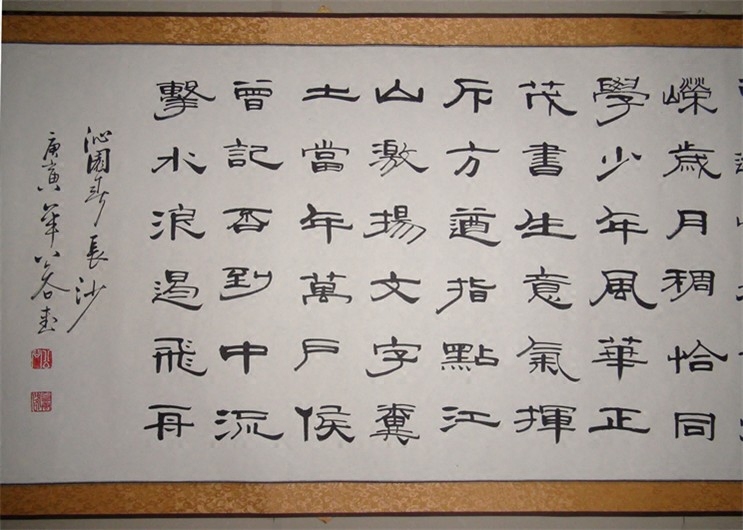 嶸歲月稠恰同
學少年風華正
茂書生意氣揮
斥方遒指點江
山激揚文字糞
土當年萬戶侯
曾記否到中流
擊水浪遏飛舟
沁園春長沙
庚寅年